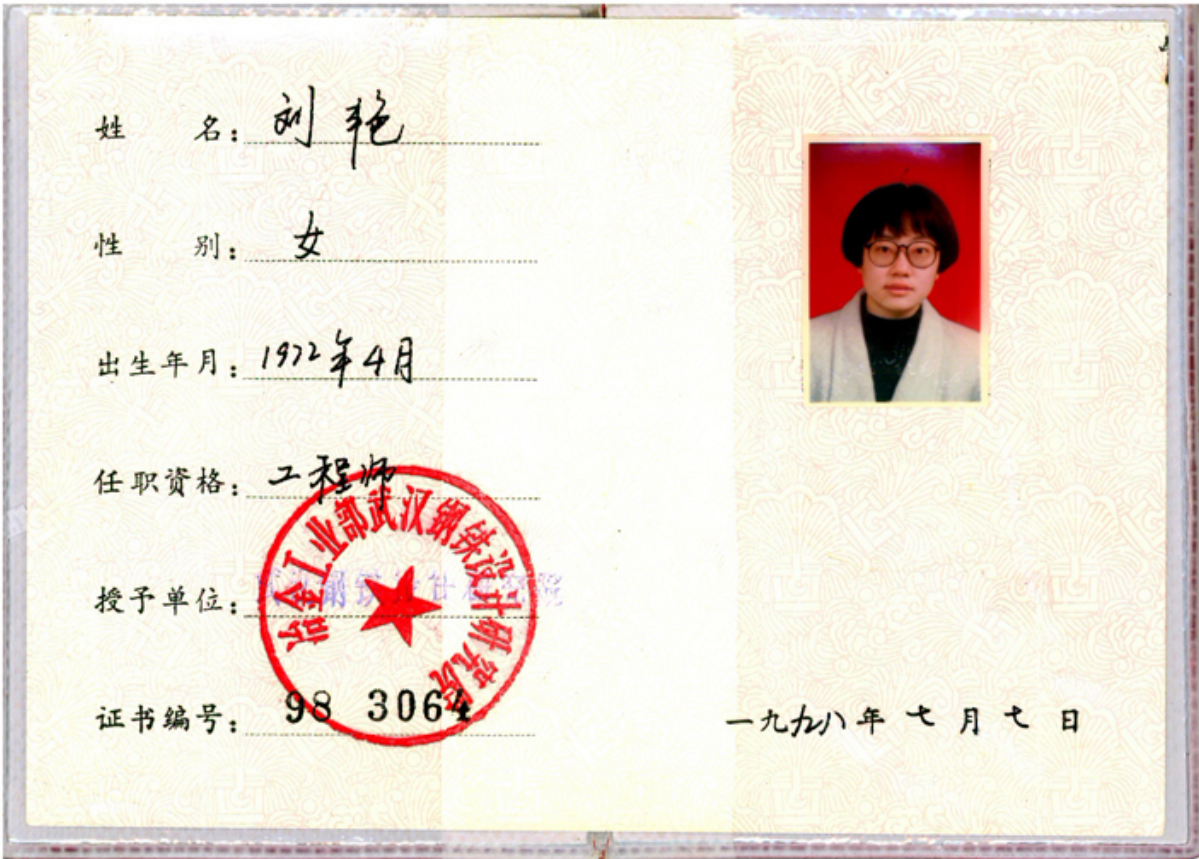 姓名：刘艳
性别：女
出生年月：1972年4月
任职资格：工程师
授予单位：武汉钢铁设计研究院
冶金工业部武汉钢铁设计研究院
证书编号：98 3064
一九九八年七月七日